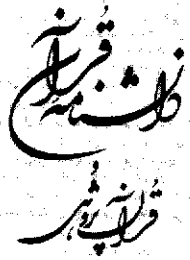 دانشنامه قرآن
و
قرآن پژوهی